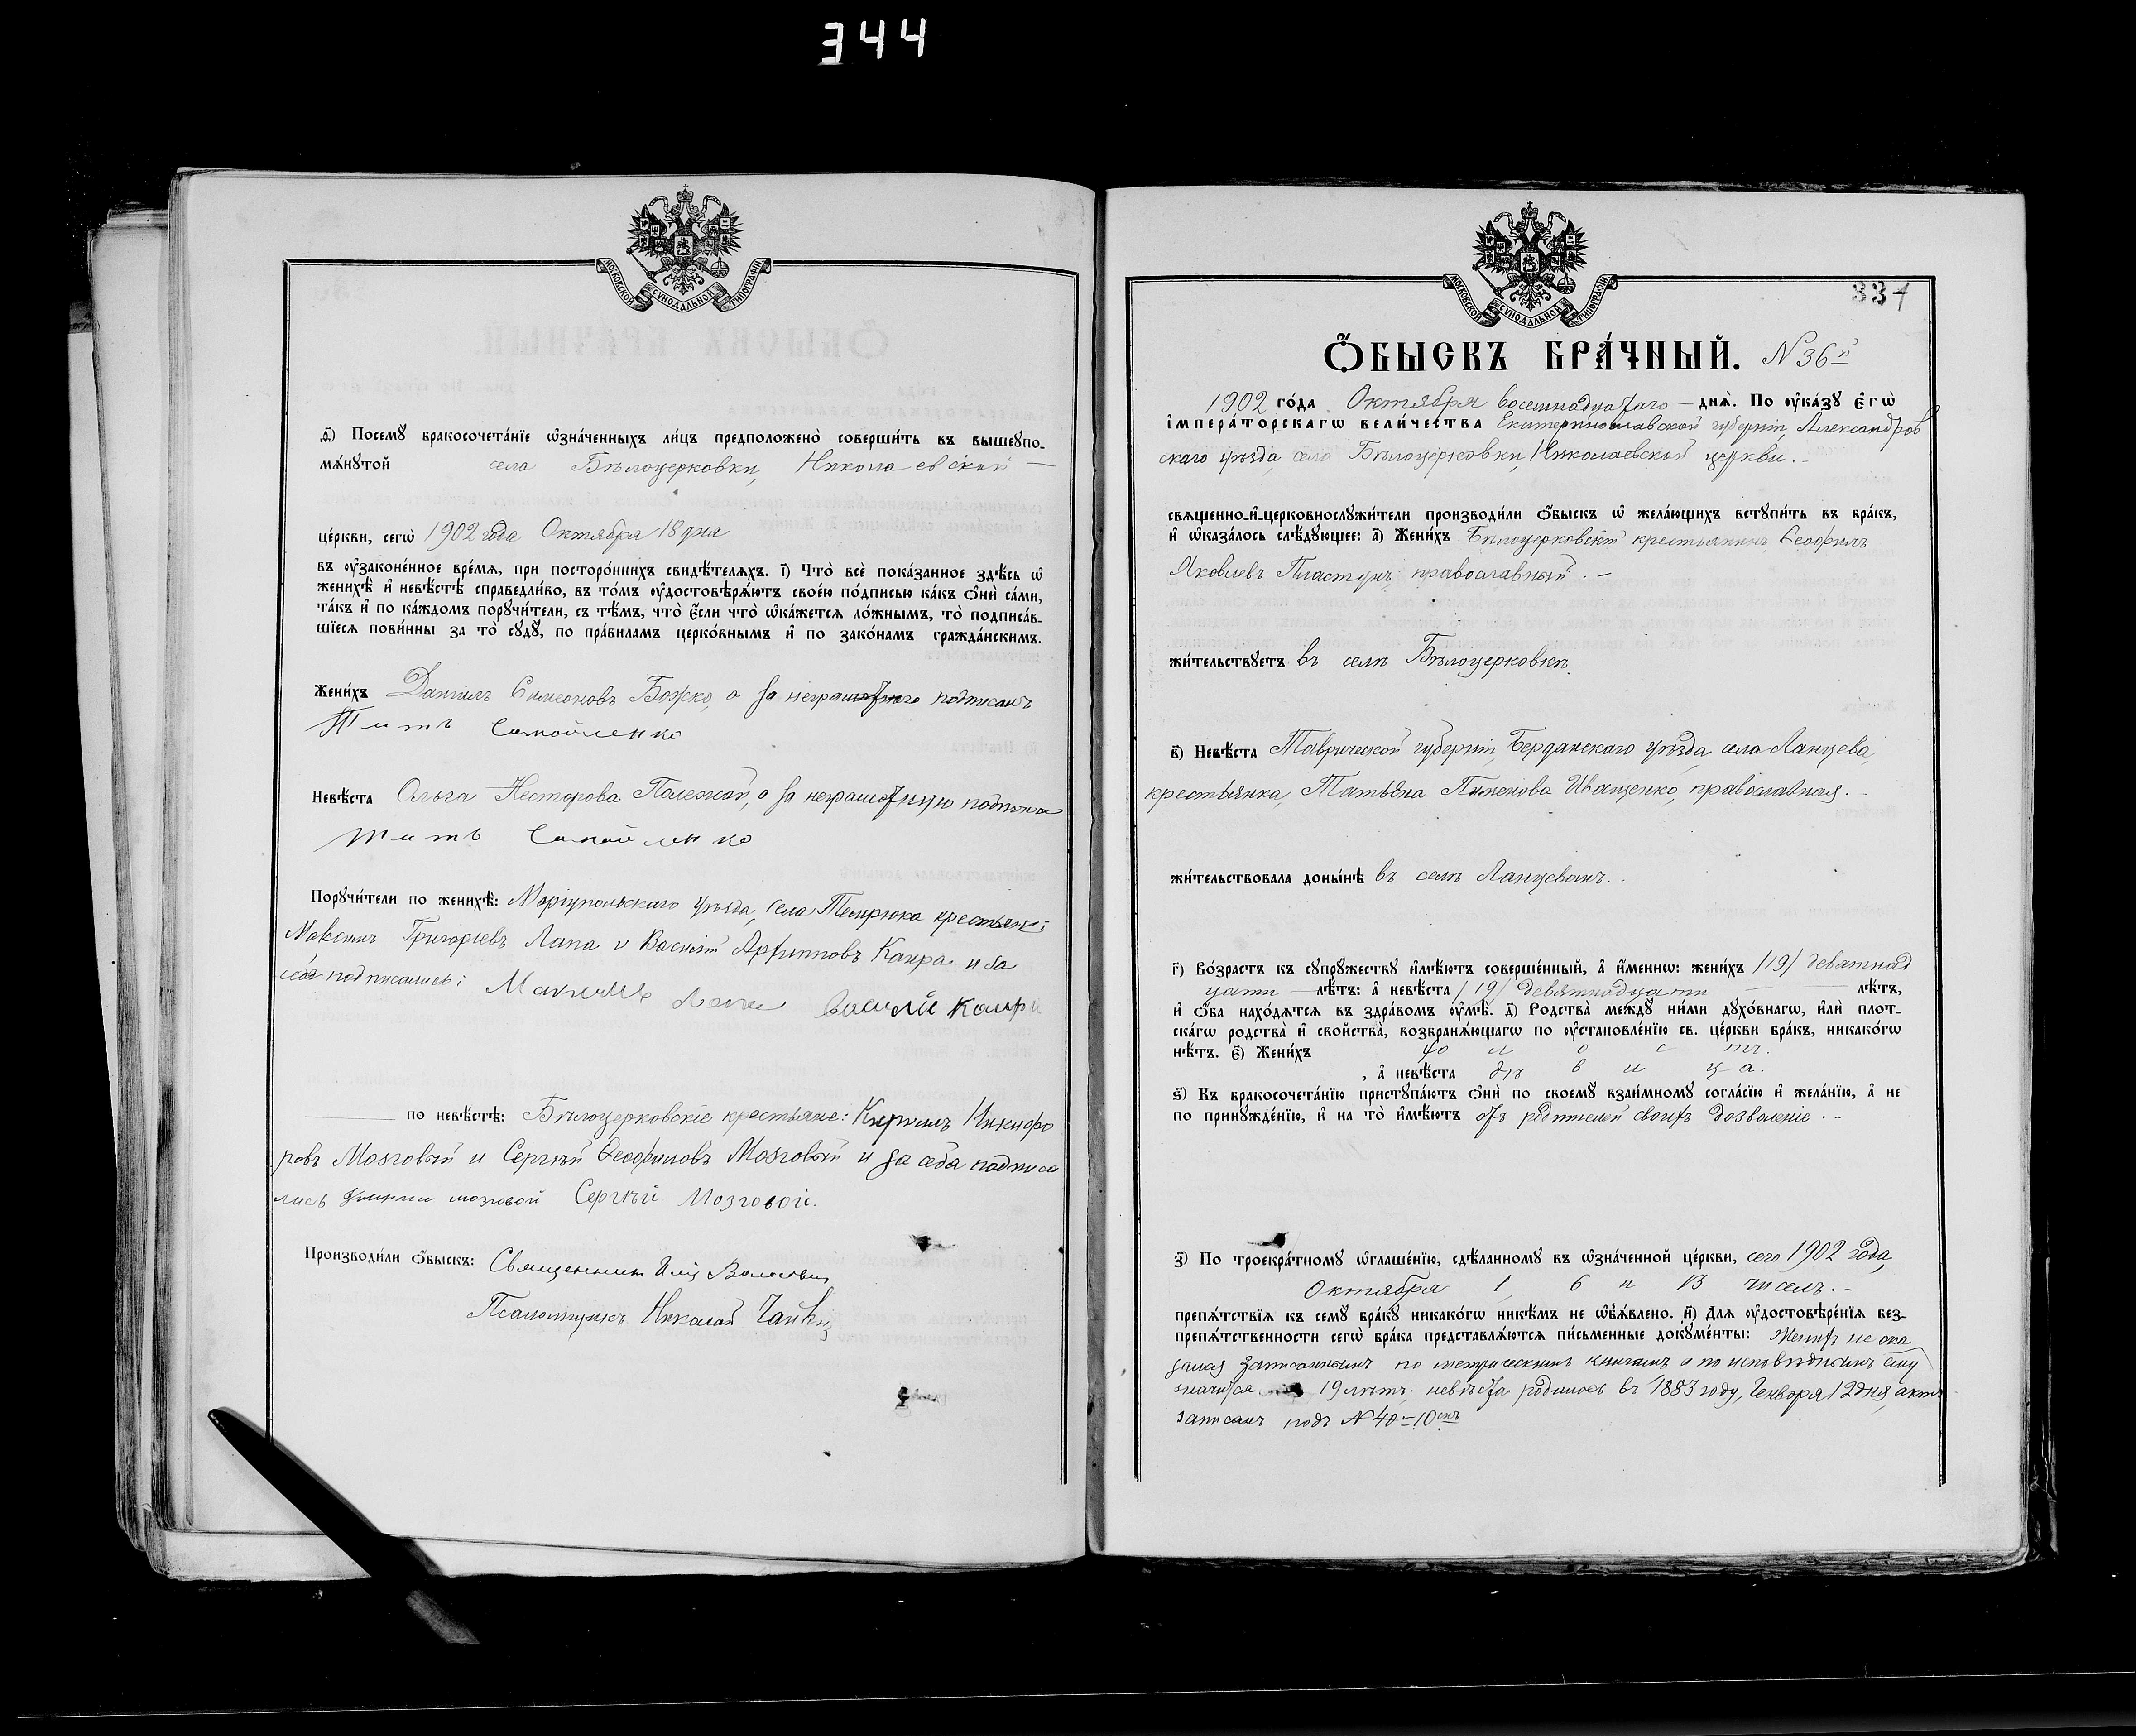 344
МОСКОВСКОЙ СѴНОДАЛЬНОЙ ТИПОГРАФІИ
ѳ҃) Посемꙋ̀ бракосочета́нїе ѡ҆зна́ченныхъ ли́цъ предположено̀ соверши́ть въ вышеꙋпо-
мѧ́нꙋтой села Бѣлоцерковки, Николаевской —
це́ркви, сегѡ̀ 1902 года Октября 18 дня
въ ᲂу҆зако́не́нное вре́мѧ, при посторо́ннихъ свидѣ́телѧхъ. і҃) Что̀ всѐ пока́занное здѣ́сь ѡ҆
женихѣ̀ и҆ невѣ́стѣ справедли́во, въ то́мъ ᲂу҆достовѣрѧ́ютъ свое́ю по́дписью ка́къ ѻ҆нѝ са́ми,
та́къ и҆ по ка́ждомъ порꙋчи́тели, съ тѣ́мъ, что̀ є҆́сли что̀ ѡ҆ка́жется ло́жнымъ, то̀ подписа́в-
шїеся пови́нны за то̀ сꙋдꙋ̀, по пра́виламъ церко́внымъ и҆ по зако́намъ гражда́нскимъ.
Жени́хъ Даніилъ Симеоновъ Божко, а за неграмотнаго подписалъ
Титъ Самойленко
Невѣ́ста Ольга Несторова Полежай, а за неграмотную подписа
Титъ Самойленко
Порꙋчи́тели по женихѣ̀: Маріупольскаго уѣзда, села Темрюка крестьяне:
Максимъ Григорьевъ Лапа и Василій Архипповъ Каира и за
себя подписались: Максимъ Лапа Василій Каира
по невѣ́стѣ: Бѣлоцерковскіе крестьяне: Кириллъ Никифо
ровъ Мозговый и Сергѣй Ѳеофиловъ Мозговый и за себя подписа
лись мозговой Сергѣй Мозговой.
Производи́ли ѻ҆́быскъ: Священникъ Илія
Псаломщикъ Николай
МОСКОВСКОЙ СѴНОДАЛЬНОЙ ТИПОГРАФІИ
334
Ѻ҆́БЫСКЪ БРА́ЧНЫЙ. N 36й
1902 го́да Октября восемнадцатаго — днѧ̀. По ᲂу҆ка́зꙋ є҆гѡ̀
і҆мпера́торскагѡ вели́чества Екатеринославской губерніи, Александров
скаго уѣзда, села Бѣлоцерковки, Николаевской церкви. –
свѧщенно-и҆-церковнослꙋжи́тели производи́ли ѻ҆́быскъ ѡ҆ жела́ющихъ встꙋпи́ть въ бра́къ,
и҆ ѡ҆каза́лось слѣ́дꙋющее: а҃) Жени́хъ Бѣлоцерковскій крестьянинъ Ѳеофилъ
Яковлевъ Пластунъ, православный. –
жи́тельствꙋетъ въ селѣ Бѣлоцерковкѣ.
в҃) Невѣ́ста Таврической губерніи, Бердянскаго уѣзда, села Ланцева,
крестьянка, Татьяна Пименова Иващенко, православная. –
жи́тельствовала доны́нѣ въ селѣ Ланцевомъ. .
г҃) Во́зрастъ къ сꙋпрꙋ́жествꙋ и҆мѣ́ютъ соверше́нный, а҆ и҆́меннѡ: жени́хъ /19/ девятнад
цати — лѣ́тъ: а҆ невѣ́ста /19/ девятнадцати — лѣ́тъ,
и҆ ѻ҆́ба нахо́дѧтся въ здра́вомъ ᲂу҆мѣ̀. д҃) Родства̀ междꙋ̀ ни́ми дꙋхо́внагѡ, и҆лѝ плот-
ска́гѡ родства̀ и҆ сво́йства̀, возбранѧ́ющагѡ по ᲂу҆становле́нїю св. це́ркви бра́къ, никако́гѡ
нѣ́тъ. є҃) Жени́хъ холостъ.
, а҆ невѣ́ста дѣвица.
ѕ҃) Къ бракосочета́нїю пристꙋпа́ютъ ѻ҆нѝ по своемꙋ̀ взаи́мномꙋ согла́сїю и҆ жела́нїю, а҆ не
по принꙋжде́нїю, и҆ на то̀ и҆мѣ́ютъ отъ родителей своихъ дозволеніе. –
з҃) По троекра́тномꙋ ѡ҆глаше́нїю, сдѣ́ланномꙋ въ ѡ҆зна́ченной це́ркви, сего 1902 года,
Октября 1, 6 и 13 чиселъ. –
препѧ́тствїѧ къ семꙋ̀ бра́кꙋ никако́гѡ никѣ́мъ не ѡ҆б̾ѧ́влено. и҃) Для ᲂу҆достовѣре́нїѧ без-
препѧ́тственности сегѡ̀ бра́ка представлѧ́ются пи́сьменные докꙋме́нты: Женихъ не ока
зался записаннымъ по метрическимъ книгамъ а по исповѣднымъ ему
значится 19 лѣтъ. невѣста родилась въ 1883 году, Генваря 12 дня, актъ
записанъ подъ N 40–10мъ